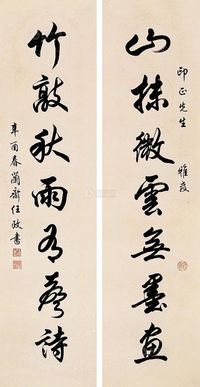 印正先生
山抹微雲無墨畫
竹敲秋雨有聲詩
辛酉春蘭齋任政書